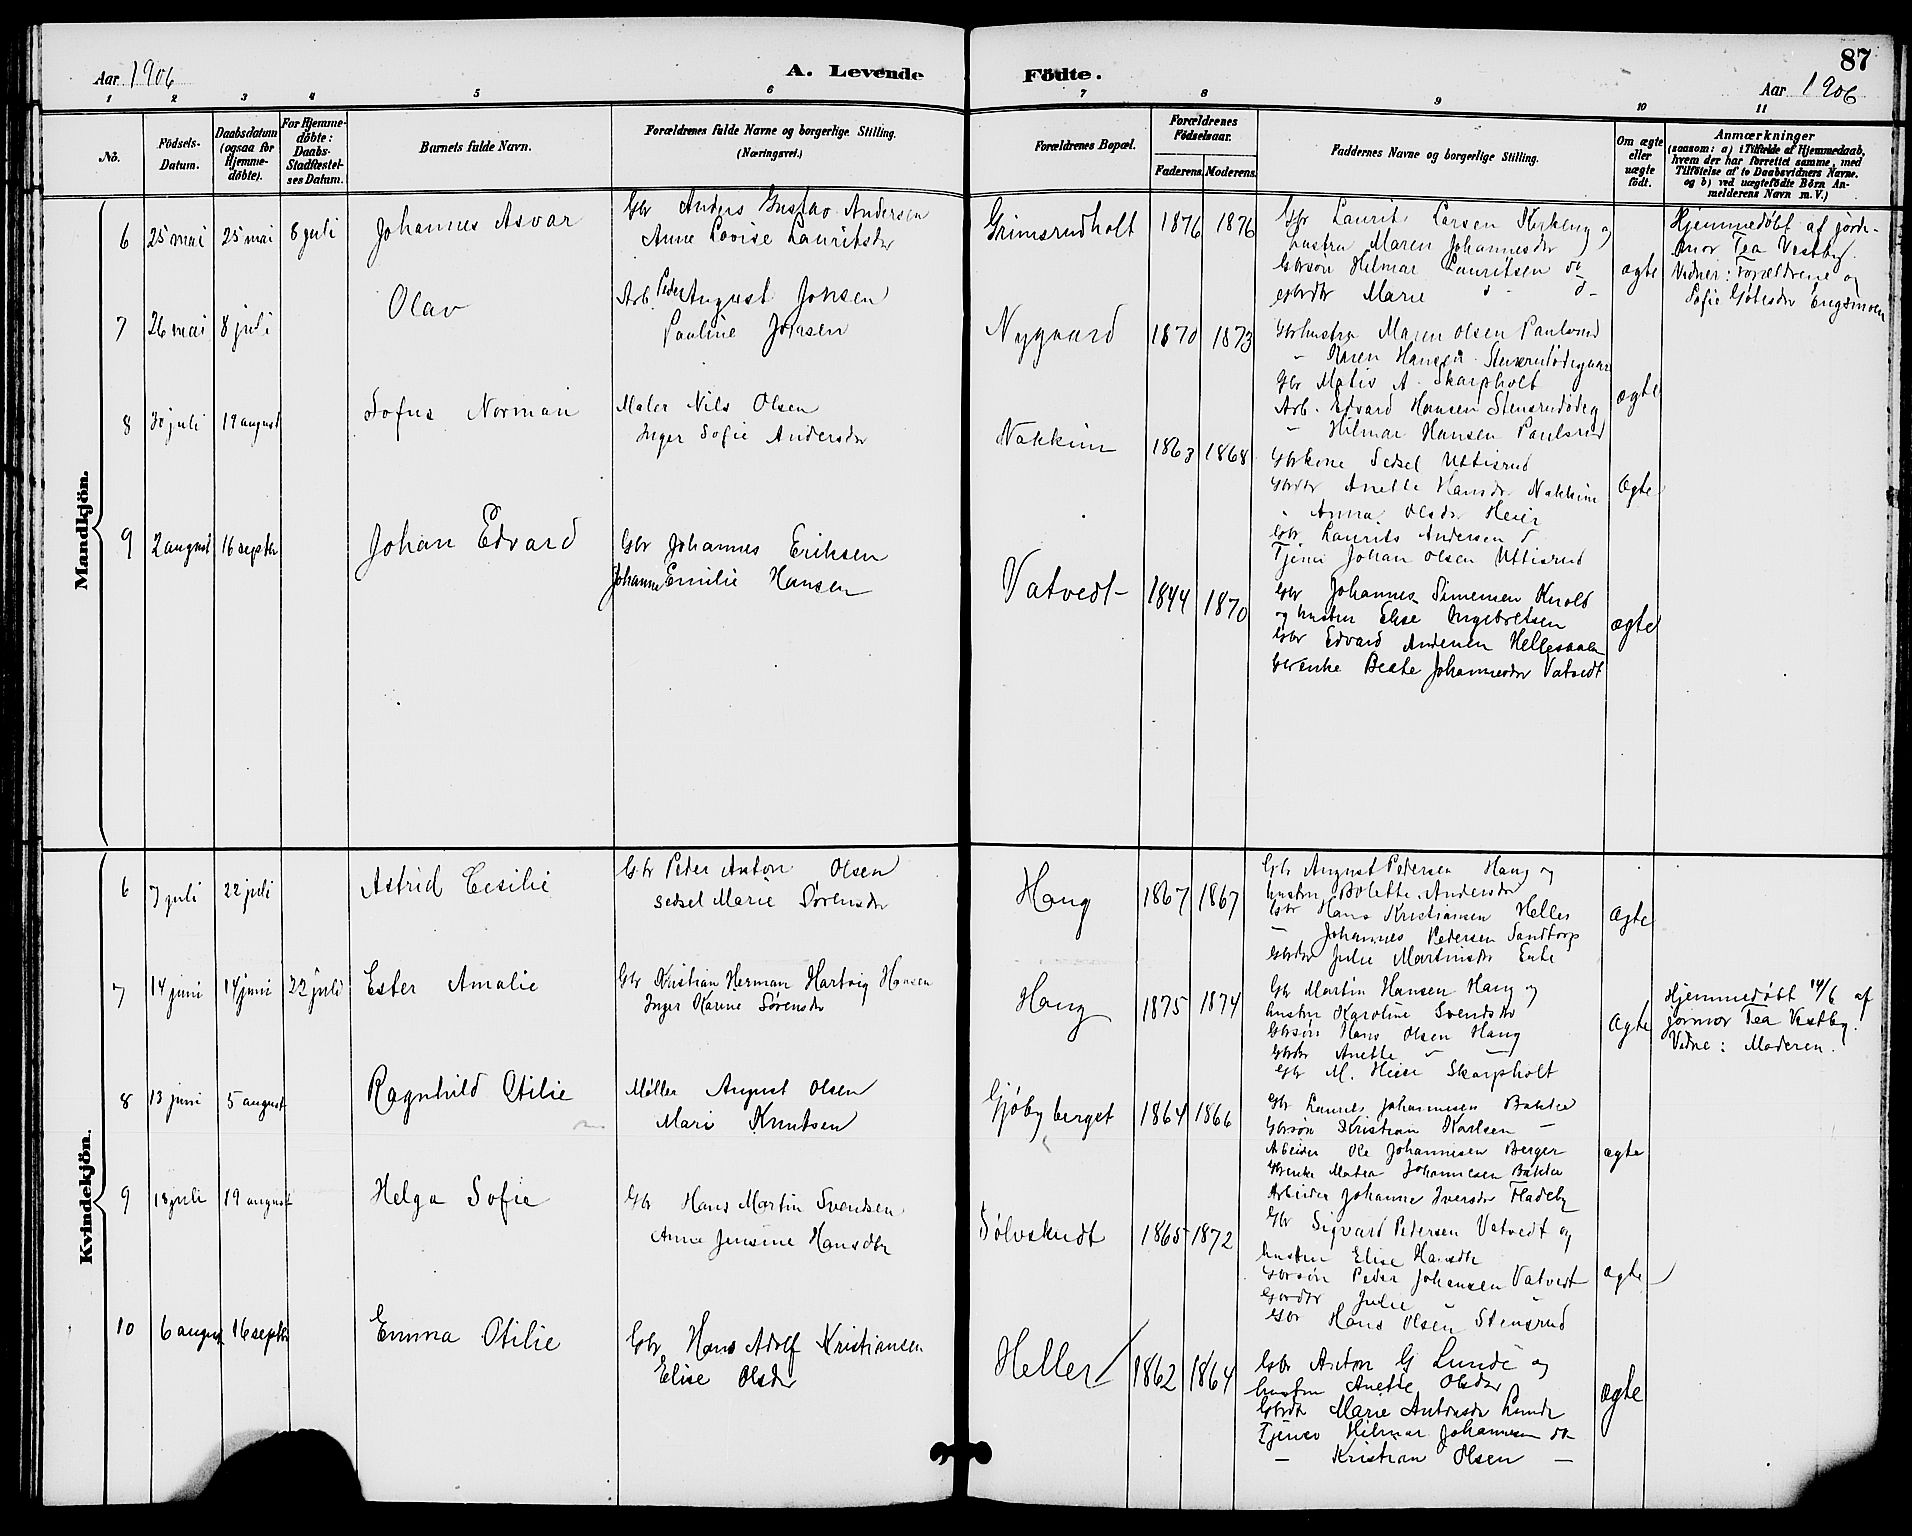 87
Aar 1906
A. Levende Födte.
Aar 1906
1 2 3 4 5 6 7 8 9 10 11
No.
Födsels-Datum.
Daabsdatum (ogsaa for Hjemme-döbte).
For Hjemme-döbte: Daabs-Stadfæstel-ses Datum.
Barnets fulde Navn.
Forældrenes fulde Navne og borgerlige Stilling.
(Næringsvei.)
Forældrenes Bopæl.
Forældrenes Födselsaar.
Faderens. Moderens.
Faddernes Navne og borgerlige Stilling.
Om ægte eller uægte födt.
Anmærkninger
(saasom: a) i Tilfælde af Hjemmedaab,
hvem der har forrettet samme, med
Tilföielse af to Daabsvidners Navne.
og b) ved uægtefödte Börn An-
melderens Navn m. V.)
Mandkjön.
6 25 mai 25 mai 8 juli Johannes Asvar
Gbr Anders Gustav Andersen
Anne Lovise Lauritsdr
Grimsrudholt 1876 1876
Gbr Laurits Larsen og
hustru Maren Johannesdr
Gbrsøn Hilmar Lauritsen do
Gbrdtr Marie d -
ægte
Hjemmedøbt af jorde-
mor Tea Vestby.
Vidner: Forældrene og
Sofie
7 26 mai 8 juli Olav
Arb. Peder August Jonsen
Pauline Jonsen
Nygaard 1870 1873
Gbrhustru Maren Olsen Paulsrud
- Karen Hansen Stensrudødegaard
Gbr Mativ A. Skarpholt
Arb. Edvard Hansen Stensrudødeg
- Hilmar Hansen Paulsrud
ægte
8 30 juli 19 august Sofus Norman
Maler Nils Olsen
Inger Sofie Andersdr
Nakkim 1863 1868
Gbrkone Sedsel Uttisrud
Gbrdtr Anette Hansdr Nakkim
" Anna Olsdr Heier
Gbr. Laurits Andersen d
Tjener Johan Olsen Uttisrud
ægte
9 2 august 16 septbr Johan Edvard
Gbr Johannes Eriksen
Johanne Emilie Hansen
Vatvedt 1844 1870
Gbr Johannes Simensen Knolt
og hustru Elise Ingebretsen
Gbr Edvard Andersen Hellesaaen
Gbrenke Beate Johannesdr Vatvedt
ægte
Kvindekjön.
6 7 juli 22 juli Astrid Cesilie
Gbr Peder Anton Olsen
Sedsel Marie Sørensdr
Haug 1867 1867
Gbr August Pedersen Haug og
hustru Bolette Andersdr
Gbr Hans Kristiansen Heller
- Johannes Pedersen Sandtorp
Gbrdtr Julie Martinsdr
ægte
7 14 juni 14 juni 22 juli Ester Amalie
Gbr Kristian Herman Hartvig Hansen
Inger Karine Sørensdr
Haug 1875 1874
Gbr Martin Hansen Haug og
hustru Karoline Svendsdr
Gbrsøn Hans Olsen Haug
Gbrdtr Anette " -
Gbr M. Heier Skarpholt
ægte
Hjemmedøbt 14/6 af
jormor Tea Vestby.
Vidne: Moderen.
8 13 juni 5 august Ragnhild Otilie
Møller August Olsen
Mari Knutsen
Gjøbyberget 1864 1866
Gbr Laurits Johannesen Bakke
Gbrsøn Kristian Karlsen -
Arbeider Ole Johannesen Berger
Gbrenke Matea Johannesen Bakke
Arbeider Johanne Iversdr Fladeby
ægte
9 18 juli 19 august Helga Sofie
Gbr Hans Martin Svendsen
Anne Jensine Hansdtr
Sølvskudt 1865 1872
Gbr Sigvard Pedersen Vatvedt og
hustru Elise Hansdtr
Gbrsøn Peder Johansen Vatvedt
Gbrdtr Julie -
Gbr Hans Olsen Stensrud
ægte
10 6 august 16 septbr Emma Otilie
Gbr Hans Adolf Kristiansen
Elise Olsdr
Heller 1862 1864
Gbr Anton G Lunde og
hustru Anette Olsdr
Gbrdtr Marie Antonsdr Lunde
Tjener Hilmar Johannesen do
- Kristian Olsen -
ægte